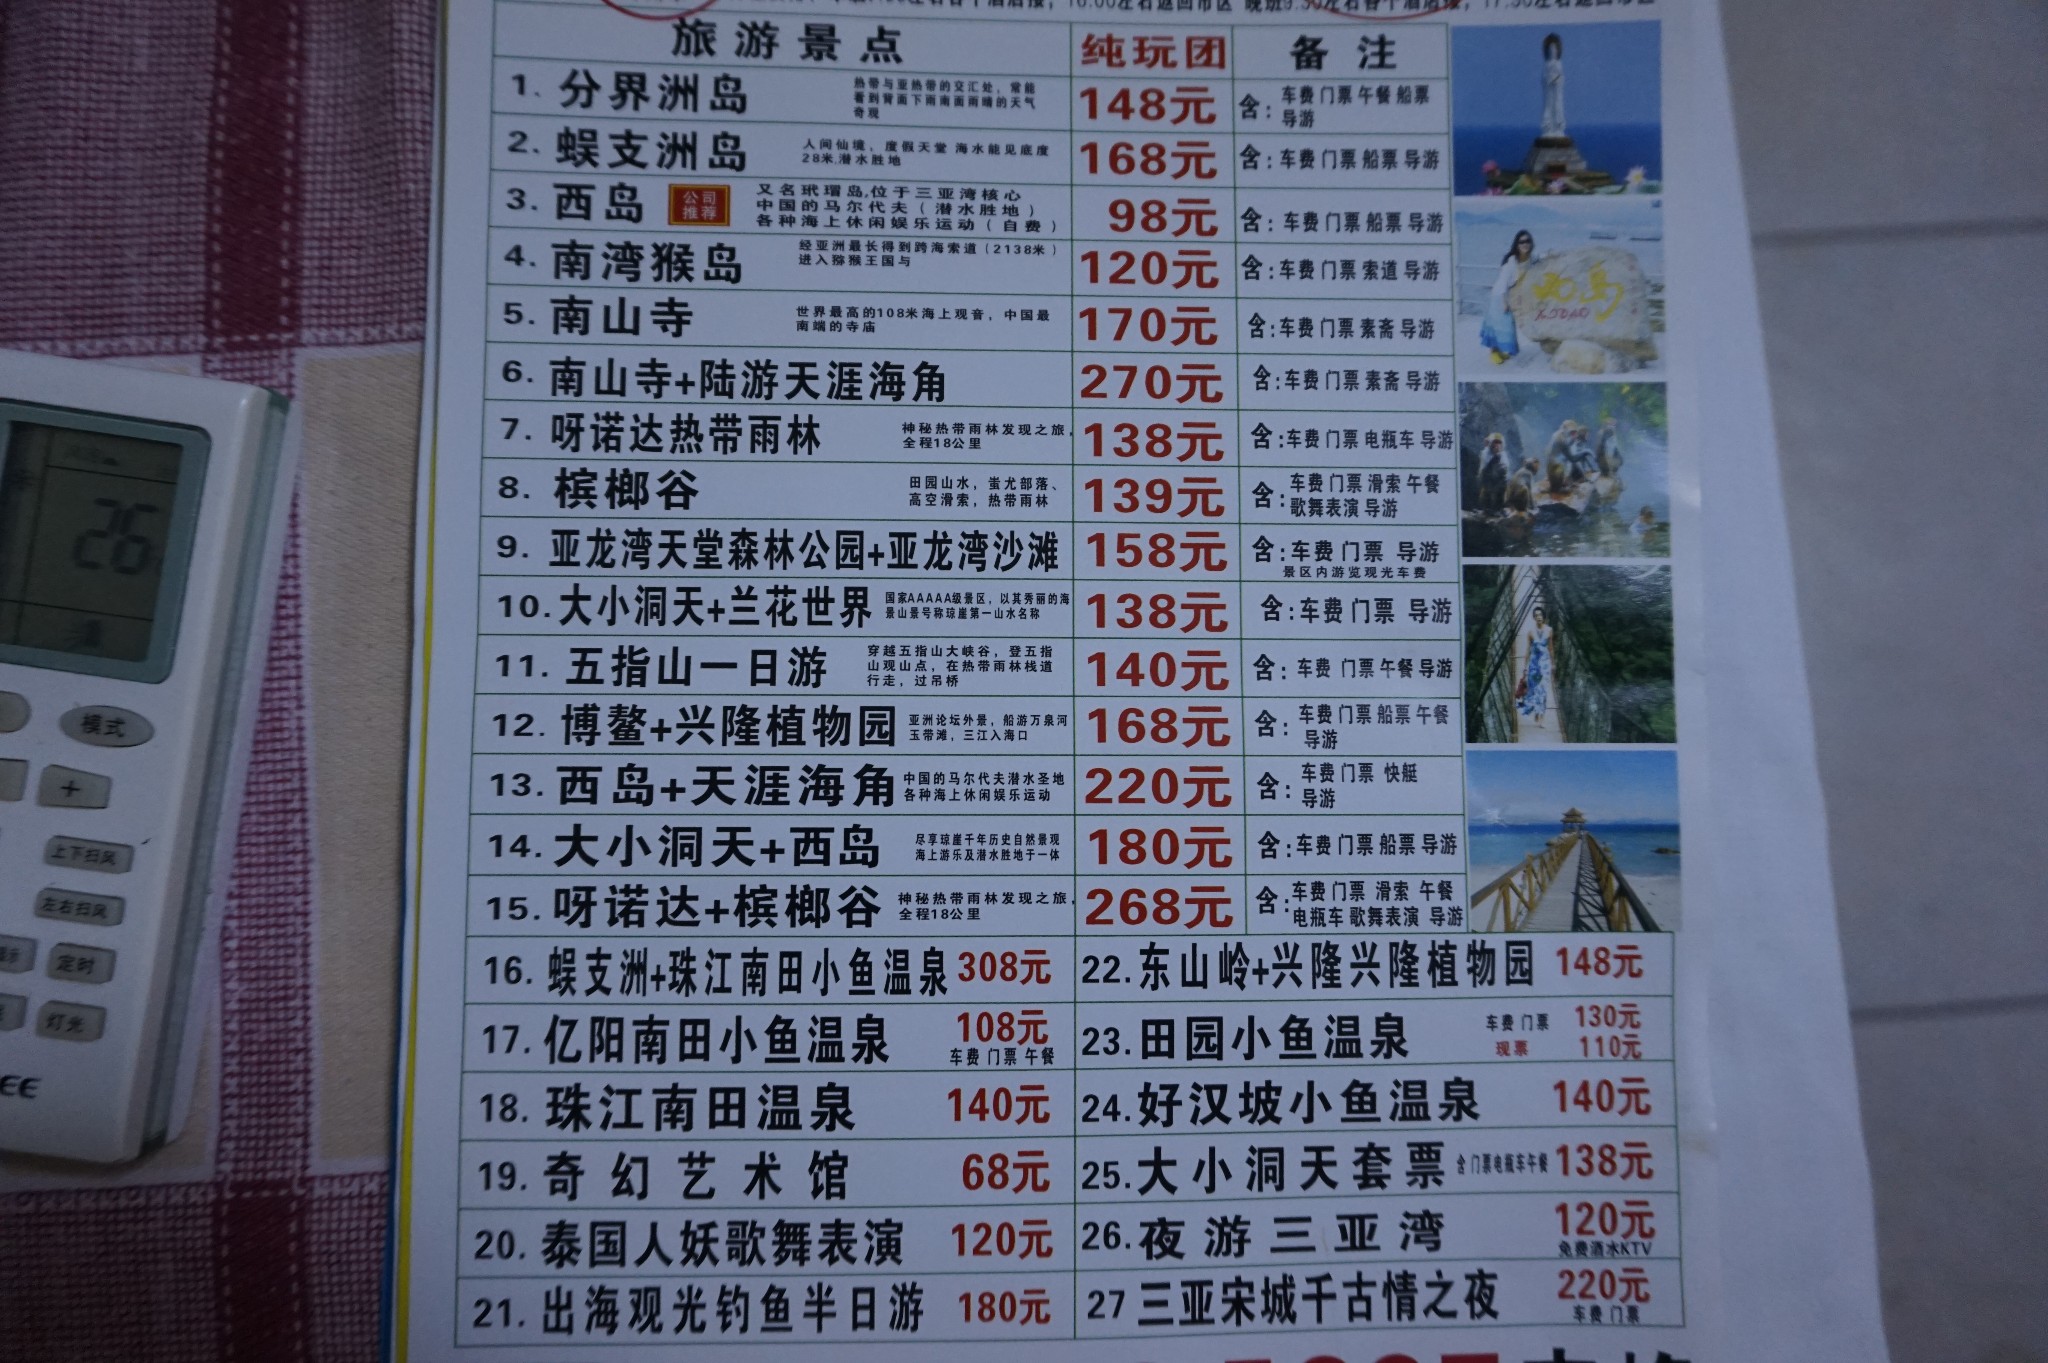 左右各个酒店接，16:00左右返回市区 晚班9:30左右各个酒店接，17:30左右返回市区
旅游景点 纯玩团 备注
1. 分界洲岛 热带与亚热带的交汇处，常能 148元 含：车费 门票 午餐 船票
看到背面下雨南面雨晴的天气 导游
奇观
2. 蜈支洲岛 人间仙境，度假天堂 海水能见底度 168元 含：车费 门票 船票 导游
28米,潜水胜地
3. 西岛 公司推荐 又名玳瑁岛,位于三亚湾核心 98元 含：车费 门票 船票 导游
中国的马尔代夫（潜水胜地）
各种海上休闲娱乐运动（自费）
4. 南湾猴岛 经亚洲最长得到跨海索道（2138米） 120元 含：车费 门票 索道 导游
进入猕猴王国与
5. 南山寺 世界最高的108米海上观音，中国最 170元 含：车费 门票 素斋 导游
南端的寺庙
6. 南山寺+陆游天涯海角 270元 含：车费 门票 素斋 导游
7. 呀诺达热带雨林 神秘热带雨林发现之旅， 138元 含：车费 门票 电瓶车 导游
全程18公里
8. 槟榔谷 田园山水，蚩尤部落、 139元 含：车费 门票 滑索 午餐
高空滑索，热带雨林 歌舞表演 导游
9. 亚龙湾天堂森林公园+亚龙湾沙滩 158元 含：车费 门票 导游
景区内游览观光车费
10. 大小洞天+兰花世界 国家AAAAA级景区，以其秀丽的海 138元 含：车费 门票 导游
景山景号称琼崖第一山水名称
11. 五指山一日游 穿越五指山大峡谷，登五指 140元 含：车费 门票 午餐 导游
山观山点，在热带雨林栈道
行走，过吊桥
12. 博鳌+兴隆植物园 亚洲论坛外景，船游万泉河 168元 含：车费 门票 船票 午餐
玉带滩，三江入海口 导游
13. 西岛+天涯海角 中国的马尔代夫潜水圣地 220元 含：车费 门票 快艇
各种海上休闲娱乐运动 导游
14. 大小洞天+西岛 尽享琼崖千年历史自然景观 180元 含：车费 门票 船票 导游
海上游乐及潜水胜地于一体
15. 呀诺达+槟榔谷 神秘热带雨林发现之旅， 268元 含：车费 门票 滑索 午餐
全程18公里 电瓶车 歌舞表演 导游
16. 蜈支洲+珠江南田小鱼温泉 308元 22. 东山岭+兴隆兴隆植物园 148元
17. 亿阳南田小鱼温泉 108元 23. 田园小鱼温泉 车费 门票 130元
车费 门票 午餐 现票 110元
18. 珠江南田温泉 140元 24. 好汉坡小鱼温泉 140元
19. 奇幻艺术馆 68元 25. 大小洞天套票 含门票电瓶车午餐 138元
20. 泰国人妖歌舞表演 120元 26. 夜游三亚湾 120元
免费酒水KTV
21. 出海观光钓鱼半日游 180元 27 三亚宋城千古情之夜 220元
车费 门票
26
模式
+
上下扫风
左右扫风
定时
灯光
EE